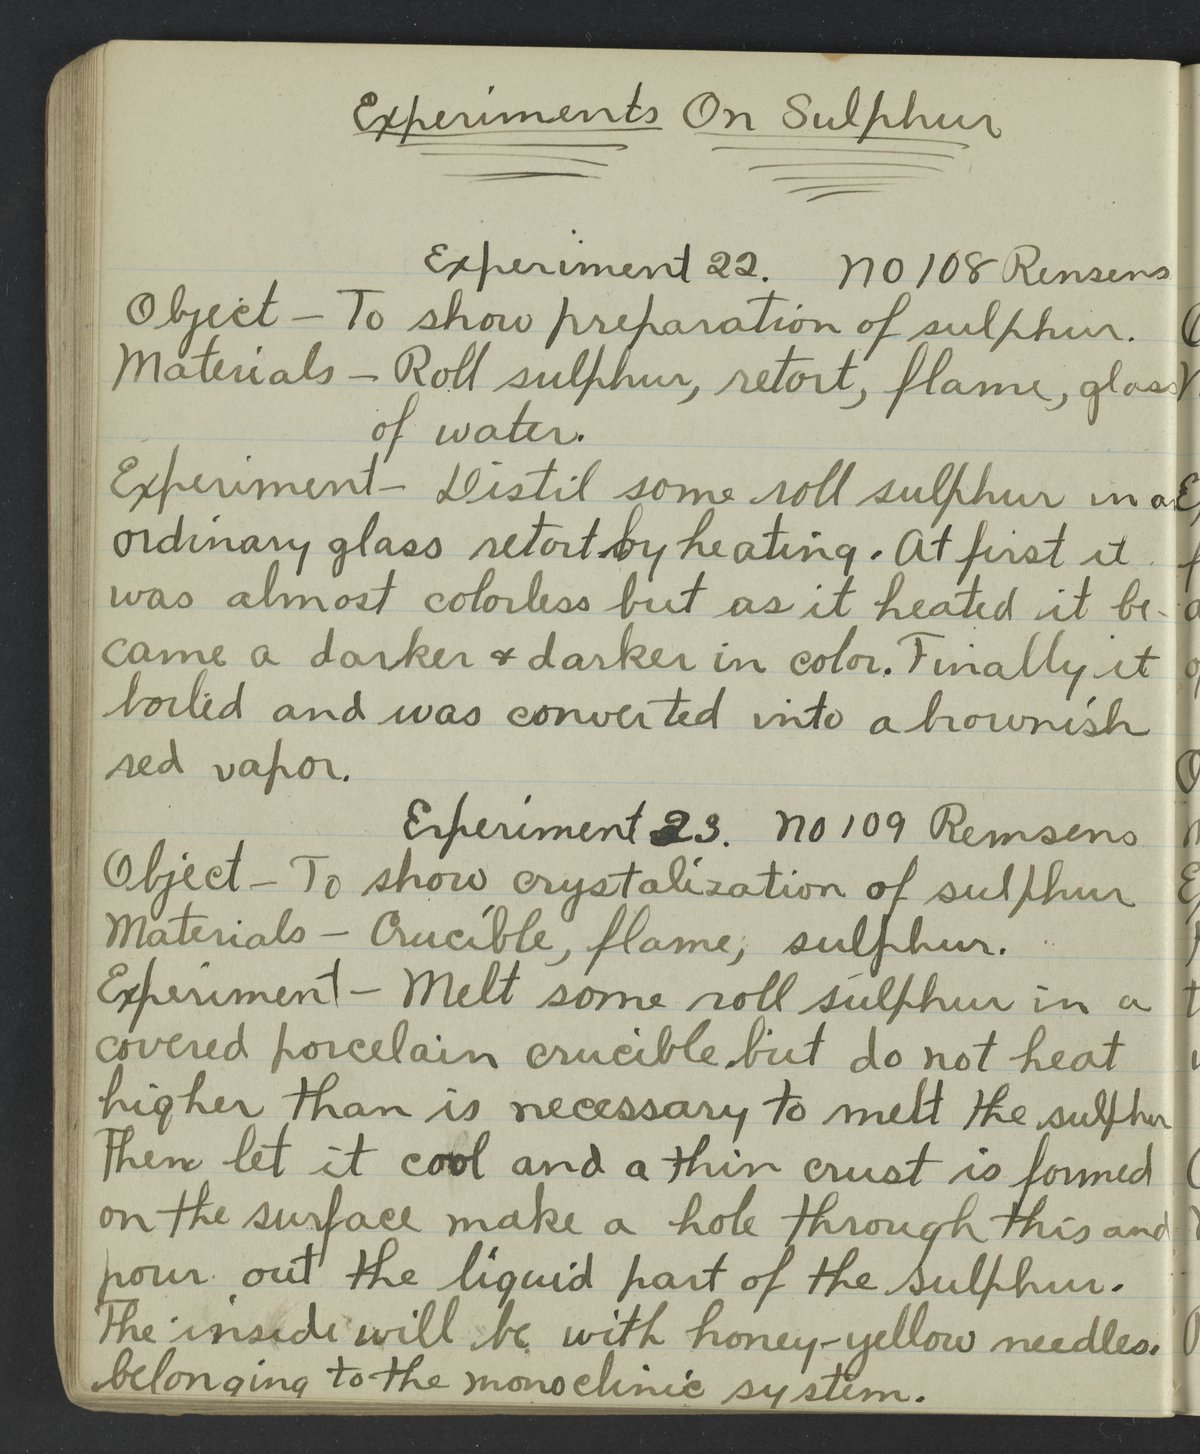 Experiments On Sulphur
Experiment 22. No 108 Remsens
Object - To show preparation of sulphur.
Materials - Roll sulphur, retort, flame, glass
of water.
Experiment - Distil some roll sulphur in a
ordinary glass retort by heating. At first it
was almost colorless but as it heated it be-
came a darker & darker in color. Finally it
boiled and was converted into a brownish
red vapor.
Experiment 23. No 109 Remsens
Object - To show crystalization of sulphur
Materials - Crucible, flame, sulphur.
Experiment - Melt some roll sulphur in a
covered porcelain crucible but do not heat
higher than is necessary to melt the sulphur
Then let it cool and a thin crust is formed
on the surface make a hole through this and
pour out the liquid part of the sulphur.
The inside will be with honey-yellow needles.
belonging to the monoclinic system.